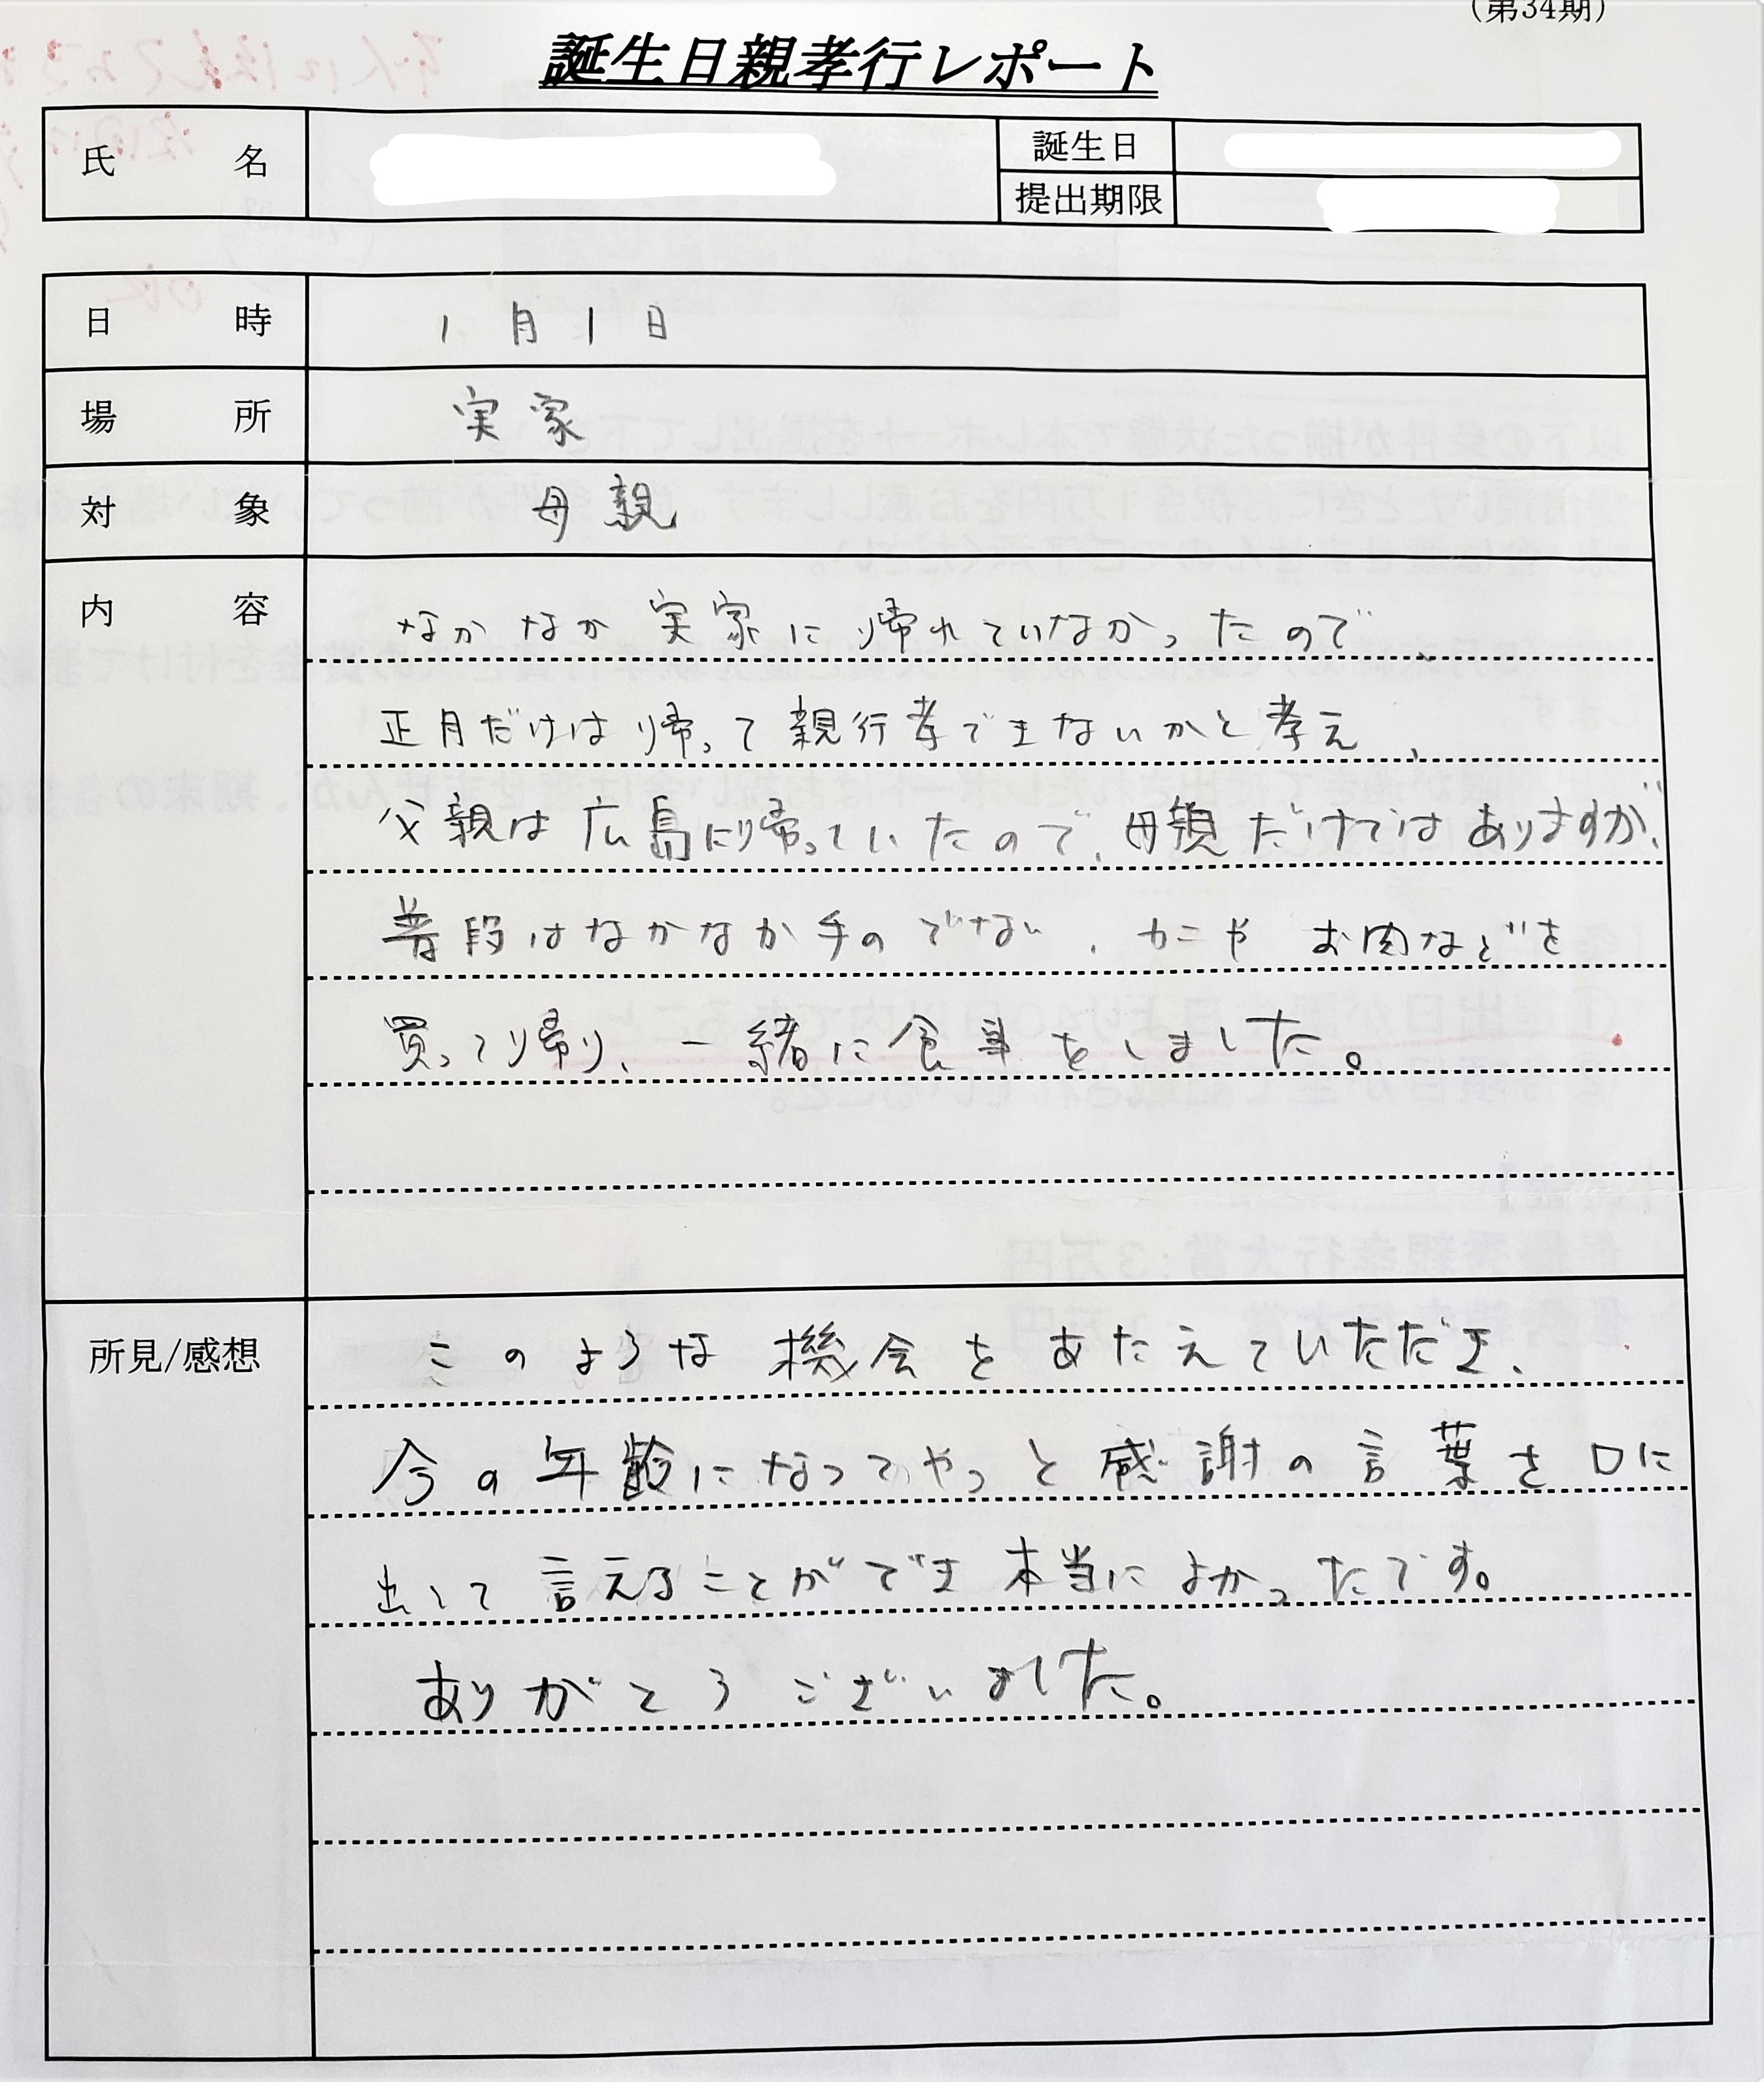 (第34期)
誕生日親孝行レポート
氏 名
誕生日
提出期限
日 時
1月1日
場 所
実家
対 象
母親
内 容
なかなか実家に帰れていなかったので、
正月だけは帰って親行孝できないかと孝え、
父親は広島に帰っていたので、母親だけではありますが、
普段はなかなか手のでない、カニや お肉などを
買って帰り、一緒に食事をしました。
所見/感想
このような機会をあたえていただき、
今の年齢になってやっと感謝の言葉を口に
出して言えることができ本当によかったです。
ありがとうございました。